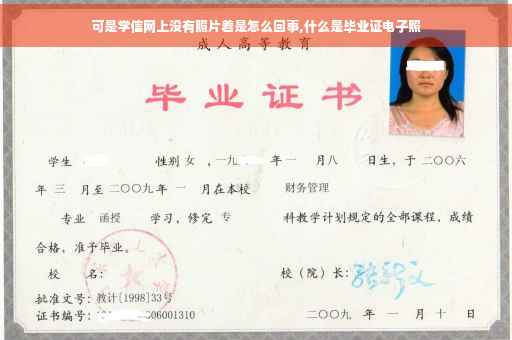 可是学信网上没有照片着是怎么回事,什么是毕业证电子照
成人高等教育
毕业证书
学生 性别 女 ,一九 年一 月八 日生，于二〇〇六
年 三 月至二〇〇九年 一 月在本校 财务管理
专业 函授 学习，修完 专 科教学计划规定的全部课程，成绩
合格，准予毕业。
校 名： 校（院）长：
批准文号：教计[1998]33号
证书编号： 006001310 二〇〇九 年 一 月 十 日